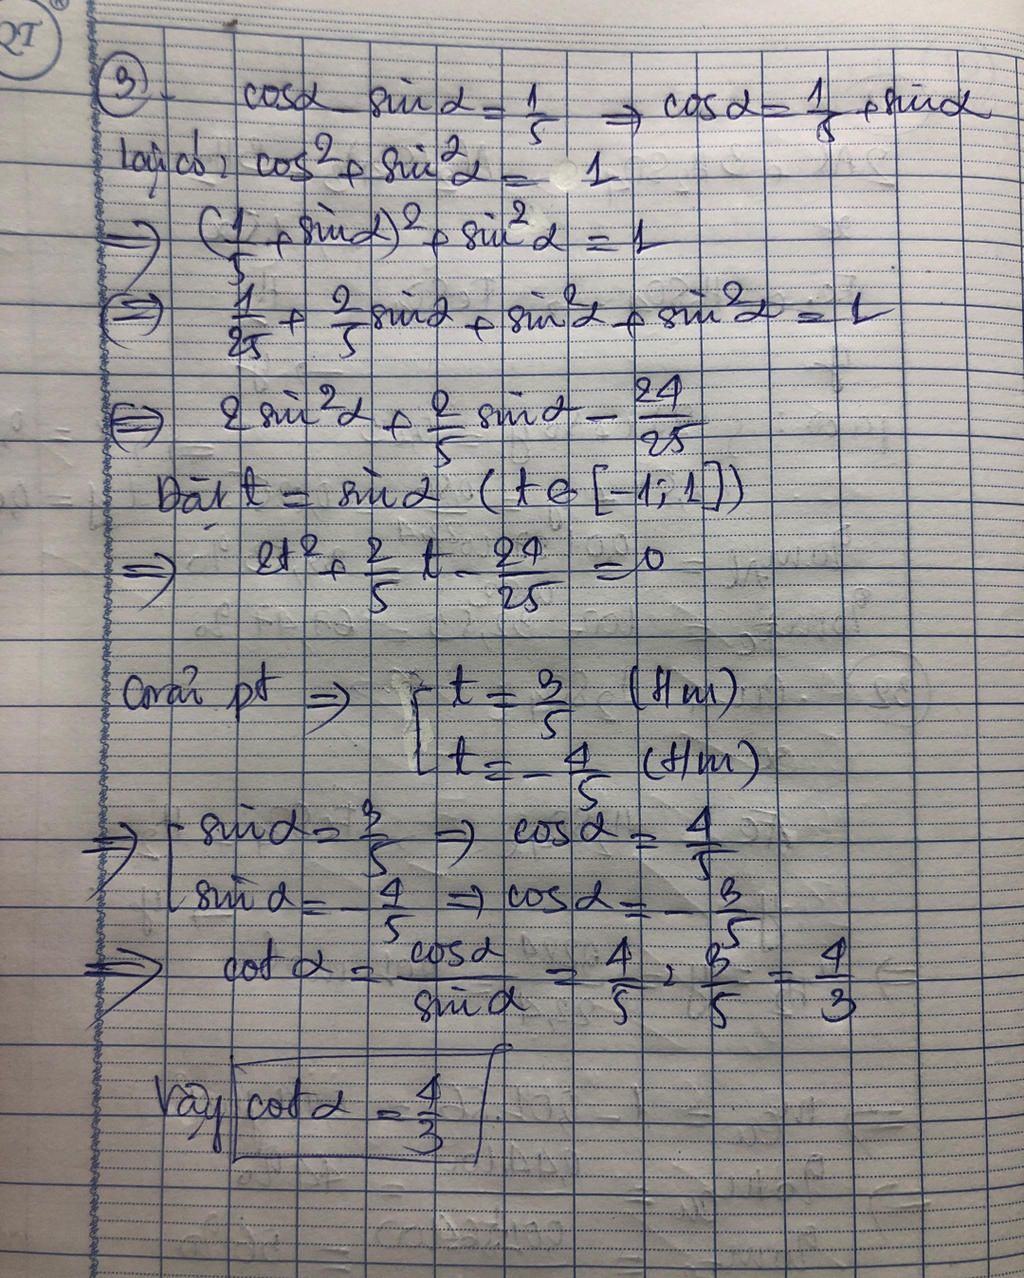 QT
3. cosα - sinα = 1/5 ⇒ cosα = 1/5 + sinα
Lại có: cos² + sin²α = 1
⇒ (1/5 + sinα)² + sin²α = 1
⇔ 1/25 + 2/5 sinα + sin²α + sin²α = 1
⇔ 2sin²α + 2/5 sinα - 24/25
Đặt t = sinα (t ∈ [-1; 1])
⇒ 2t² + 2/5 t - 24/25 = 0
Giải pt ⇒ [ t = 3/5 (t/m)
t = -4/5 (t/m)
⇒ [ sinα = 3/5 ⇒ cosα = 4/5
sinα = -4/5 ⇒ cosα = -3/5
⇒ cotα = cosα/sinα = 4/5 : 3/5 = 4/3
Vậy cotα = 4/3